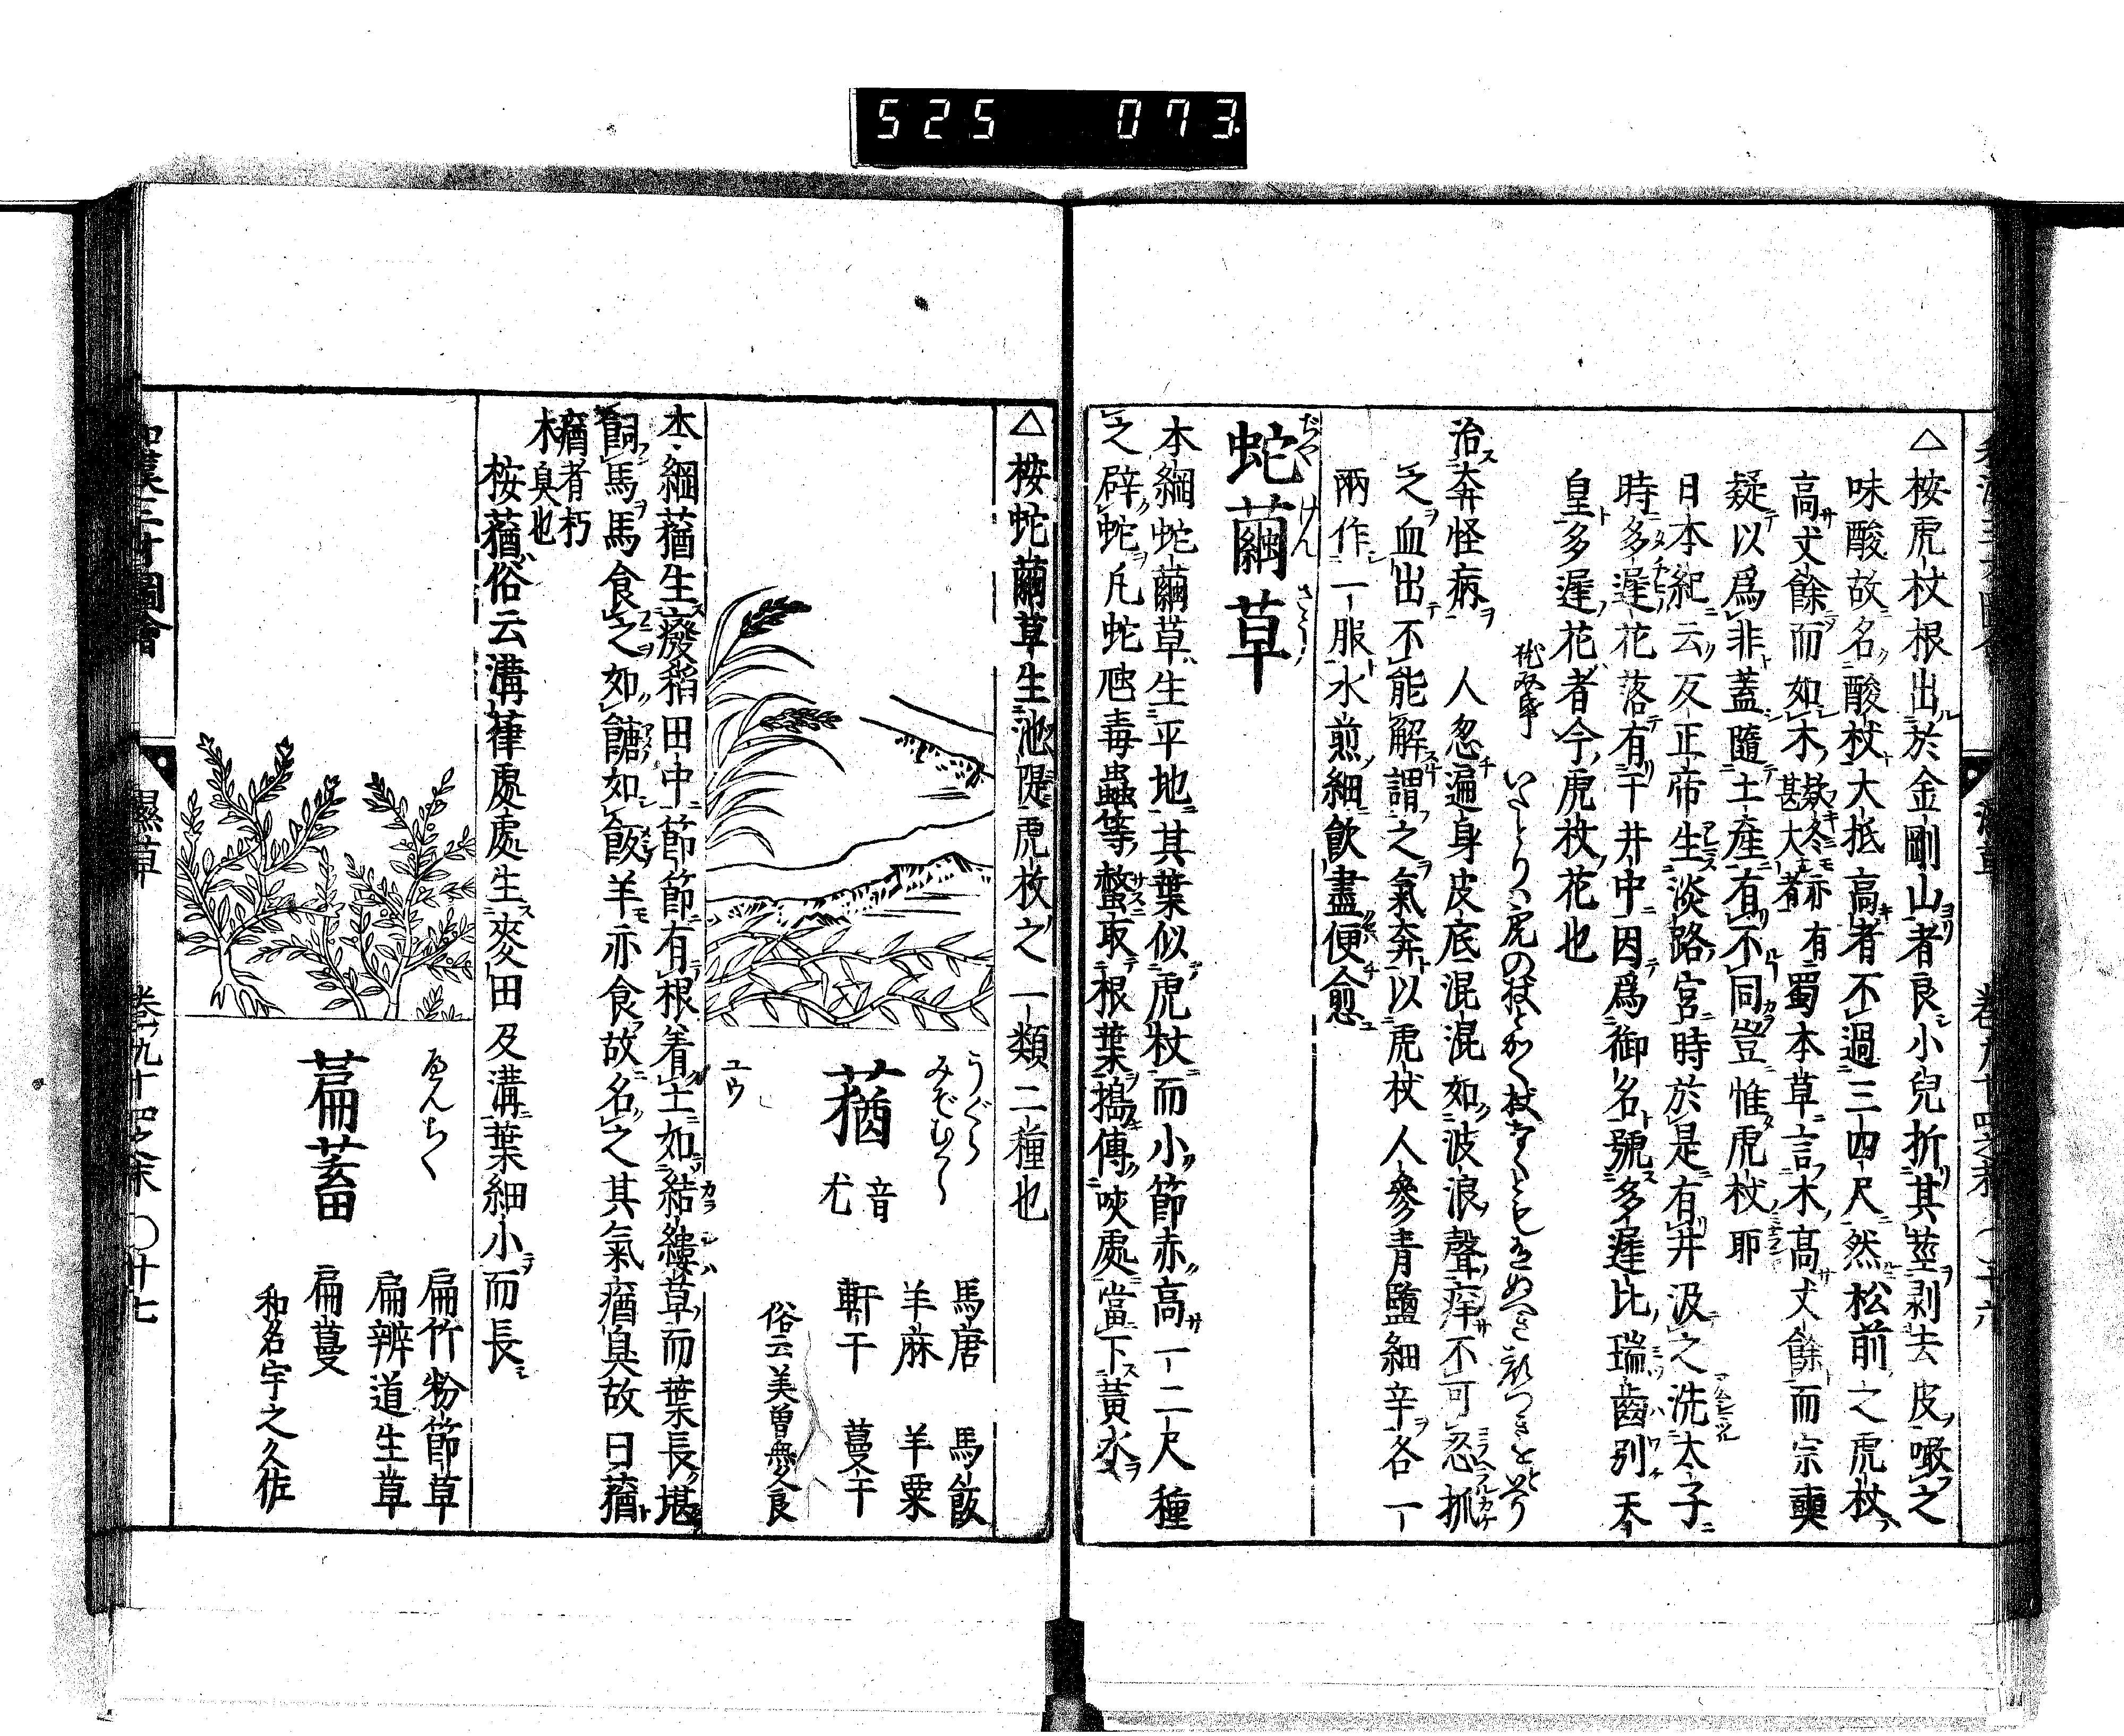 525 073
△桉虎杖根出於金剛山者良小兒折其莖剥去皮噉之
味酸故名酸杖大抵高者不過三四尺然松前之虎杖
高丈餘而如木 甚大者 有蜀本草言木高丈餘而宗奭
疑以爲非蓋隨土產有不同豈惟虎杖耶
日本紀云反正帝生淡路宮時於是有井汲之洗太子
時多遲花落有于井中因爲御名號多遲比瑞齒別天
皇多遲花者今虎杖花也
治奔怪病 人忽遍身皮底混混如波浪聲痒不可忍抓
之血出不能解謂之氣奔以虎杖人參青鹽細辛各一
兩作一服水煎細飲盡便愈
蛇繭草
じや けん さう
本綱蛇繭草生平地其葉似虎杖而小節赤高一二尺種
之辟蛇凡蛇虺毒蟲等螫取根葉搗傅咬處當下黃水
△桉蛇繭草生池隄虎杖之一類二種也
蕕
音尤
ユウ
馬唐 馬飯
羊麻 羊粟
軒干 蔓干
俗云美曽無久良
本綱蕕生癈稻田中節節有根着土如結縷草而葉長堪
飼馬馬食之如餹如飯羊亦食故名之其氣㾞臭故曰蕕
㾞者朽
木臭也
桉蕕俗云溝葎處處生麥田及溝葉細小而長
萹蓄
へんちく
扁竹 粉節草
扁辨 道生草
扁蔓
和名宇之久佐
和漢三才圖會
濕草
卷九十四之末
〇廿七